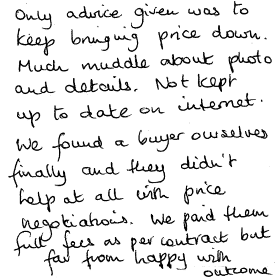 Only advice given was to
keep bringing price down.
Much muddle about photo
and details. Not kept
up to date on internet.
We found a buyer ourselves
finally and they didn't
help at all with price
negotiations. We paid them
full fees as per contract but
far from happy with
outcome